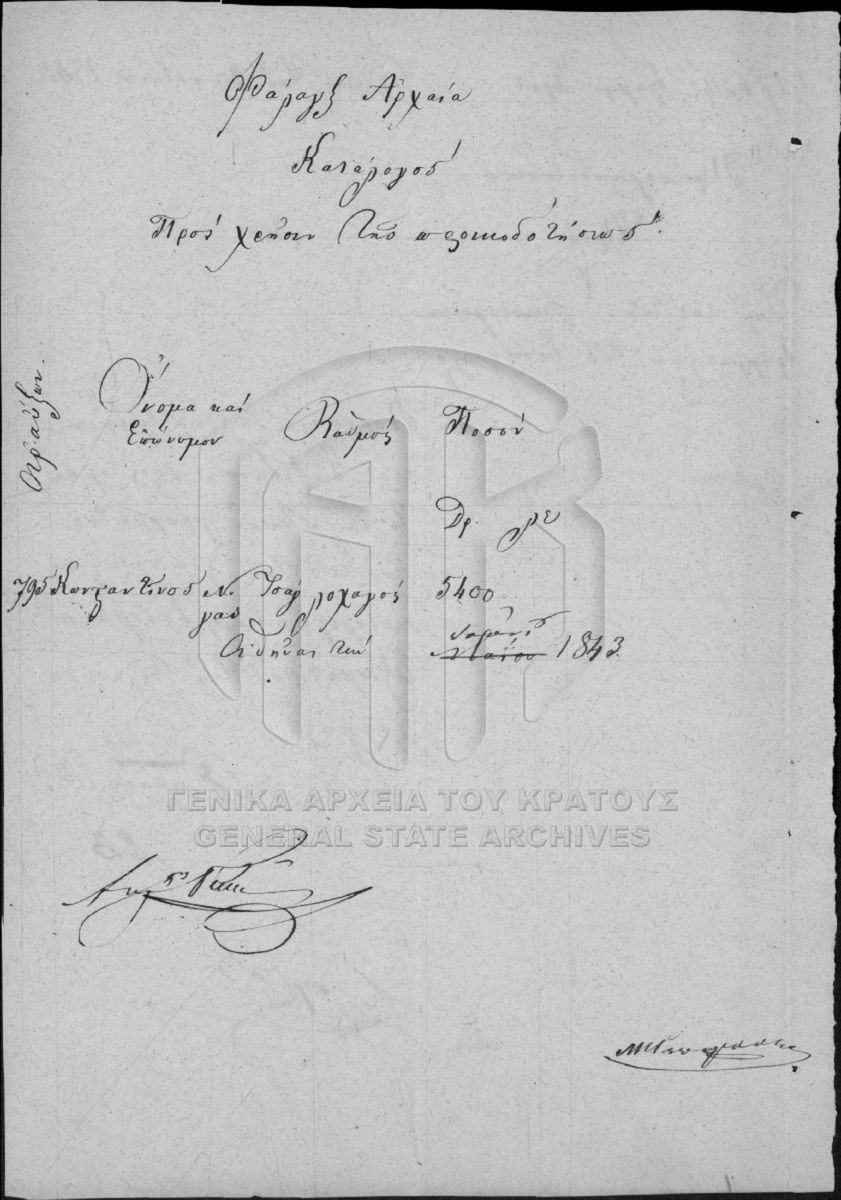 Φάλαγξ Αρχαία
Κατάλογος
Προς χρήσιν της προικοδοτήσεως
Αρ αύξων.
Όνομα και Επώνυμον
Βαθμός
Ποσόν
Δρ.
795 Κωνσταντίνος Ν. Τσαγ λοχαγός 5400
γας
Αθήναι την Μαΐου 1843.
ΓΕΝΙΚΑ ΑΡΧΕΙΑ ΤΟΥ ΚΡΑΤΟΥΣ
GENERAL STATE ARCHIVES